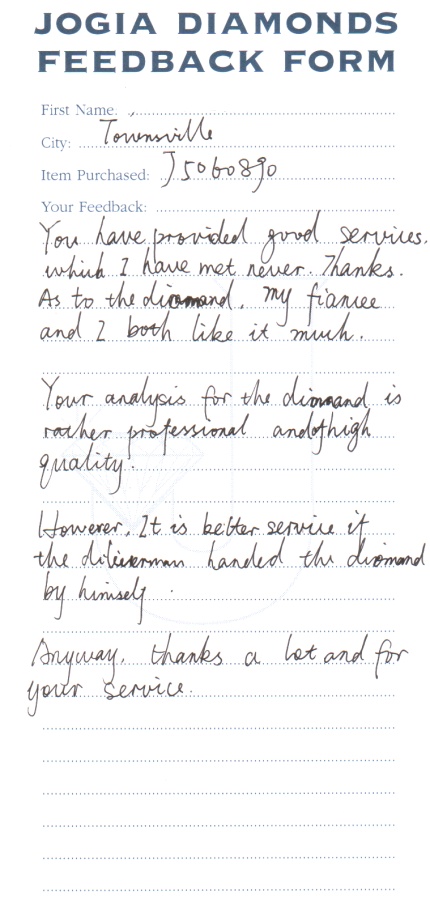 JOGIA DIAMONDS
FEEDBACK FORM
First Name:
City: Townsville
Item Purchased: J5060890
Your Feedback:
You have provided good services.
which I have met never. Thanks.
As to the diamand, my fiancee
and I both like it much.
Your analysis for the diamand is
rather professional and of high
quality.
However, It is better service if
the deliverman handed the diamand
by himself.
Anyway, thanks a lot and for
your service.